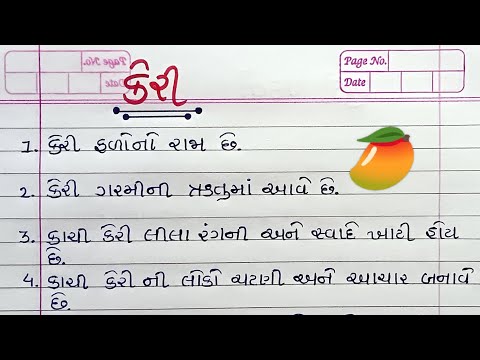 Page No.
Date
કેરી
1. કેરી ફળોનો રાજા છે.
2. કેરી ગરમીની ઋતુમાં આવે છે.
3. કાચી કેરી લીલા રંગની અને સ્વાદે ખાટી હોય
છે.
4. કાચી કેરી ની લોકો ચટાણી અને આચાર બનાવે
છે.